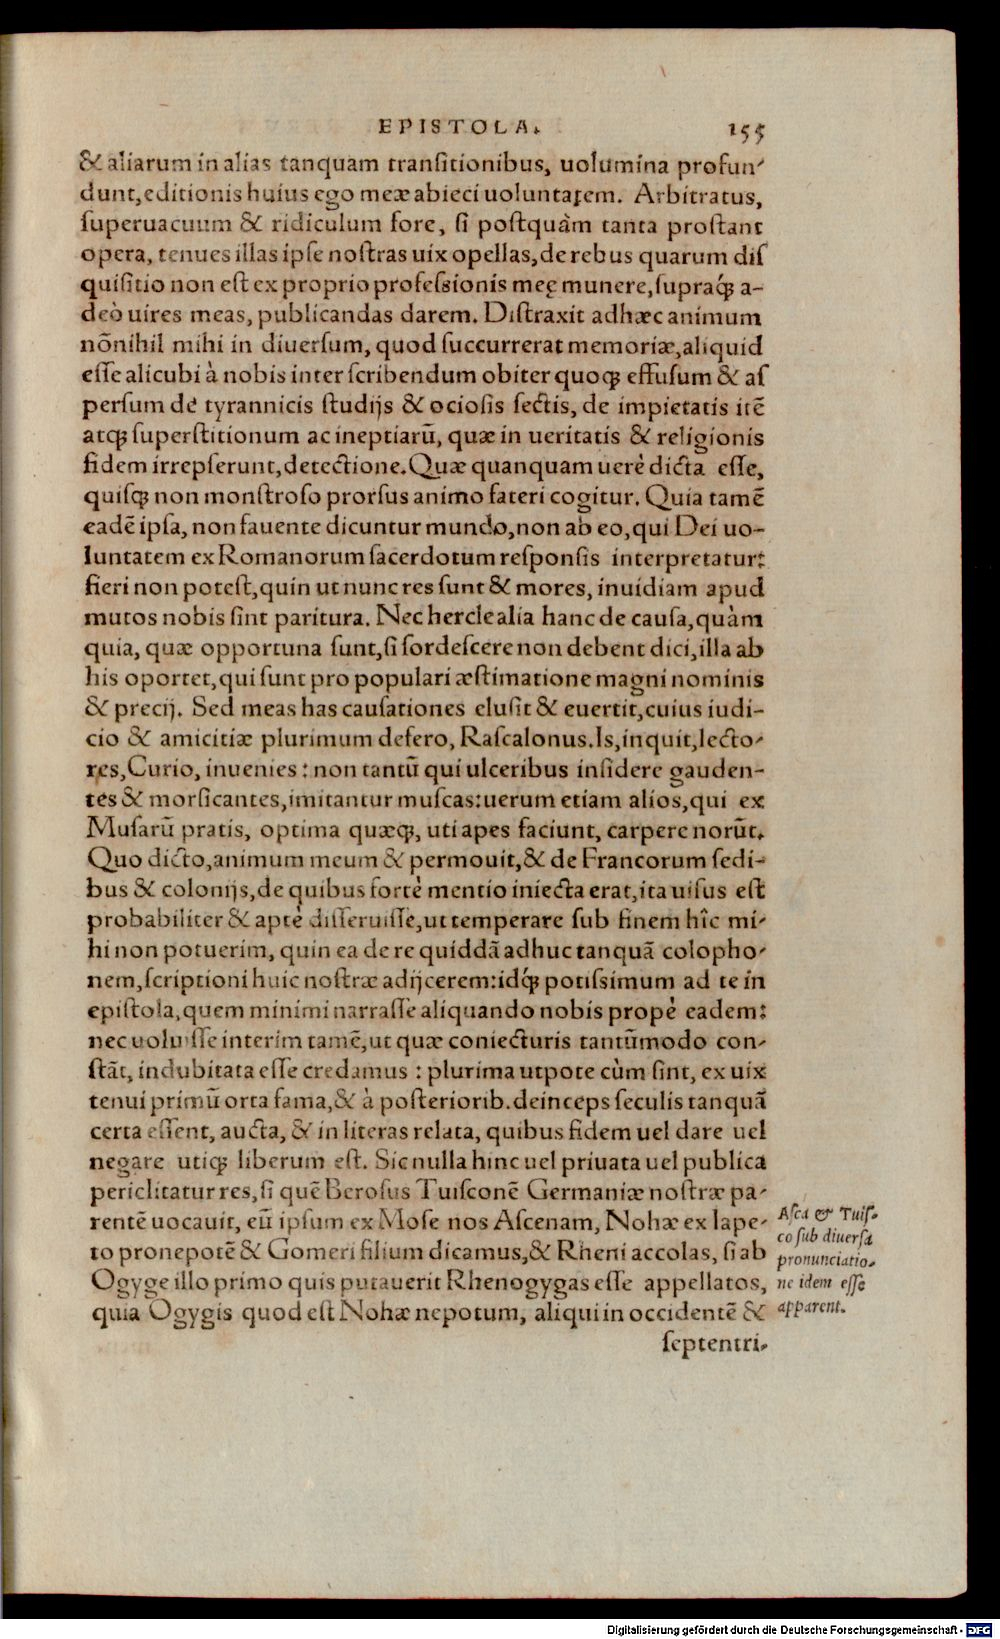 EPISTOLA. 155
& aliarum in alias tanquam transitionibus, uolumina profun-
dunt, editionis huius ego meæ abieci uoluntatem. Arbitratus,
superuacuum & ridiculum fore, si postquàm tanta prostant
opera, tenues illas ipse nostras uix opellas, de rebus quarum dis
quisitio non est ex proprio professionis meę munere, supraq́ꝫ a-
deò uires meas, publicandas darem. Distraxit adhæc animum
nõnihil mihi in diuersum, quod succurrerat memoriæ, aliquid
esse alicubi à nobis inter scribendum obiter quoqꝫ effusum & as
persum de tyrannicis studijs & ociosis sectis, de impietatis itẽ
atqꝫ superstitionum ac ineptiarũ, quæ in ueritatis & religionis
fidem irrepserunt, detectione. Quæ quanquam uerè dicta esse,
quisqꝫ non monstroso prorsus animo fateri cogitur. Quia tamẽ
eadẽ ipsa, non fauente dicuntur mundo, non ab eo, qui Dei uo-
luntatem ex Romanorum sacerdotum responsis interpretatur:
fieri non potest, quin ut nunc res sunt & mores, inuidiam apud
mutos nobis sint paritura. Nec hercle alia hanc de causa, quàm
quia, quæ opportuna sunt, si sordescere non debent dici, illa ab
his oportet, qui sunt pro populari æstimatione magni nominis
& precij. Sed meas has causationes elusit & euertit, cuius iudi-
cio & amicitiæ plurimum defero, Rascalonus. Is, inquit, lecto-
res, Curio, inuenies: non tantũ qui ulceribus insidere gauden-
tes & morsicantes, imitantur muscas: uerum etiam alios, qui ex
Musarũ pratis, optima quæqꝫ, uti apes faciunt, carpere norũt.
Quo dicto, animum meum & permouit, & de Francorum sedi-
bus & colonijs, de quibus fortè mentio iniecta erat, ita uisus est
probabiliter & aptè disseruisse, ut temperare sub finem hîc mi-
hi non potuerim, quin ea de re quiddã adhuc tanquã colopho-
nem, scriptioni huic nostræ adijcerem: idq́ꝫ potissimum ad te in
epistola, quem minimi narrasse aliquando nobis propè eadem:
nec uoluisse interim tamẽ, ut quæ coniecturis tantũmodo con-
stãt, indubitata esse credamus: plurima utpote cùm sint, ex uix
tenui primũ orta fama, & à posteriorib. deinceps seculis tanquã
certa essent, aucta, & in literas relata, quibus fidem uel dare uel
negare utiqꝫ liberum est. Sic nulla hinc uel priuata uel publica
periclitatur res, si quẽ Berosus Tuisconẽ Germaniæ nostræ pa-
rentẽ uocauit, eũ ipsum ex Mose nos Ascenam, Nohæ ex Iape-
to pronepotẽ & Gomeri filium dicamus, & Rheni accolas, si ab
Ogyge illo primo quis putauerit Rhenogygas esse appellatos,
quia Ogygis quod est Nohæ nepotum, aliqui in occidentẽ &
septentri-
Asca & Tuis-
co sub diuersa
pronunciatio-
ne idem esse
apparent.
Digitalisierung gefördert durch die Deutsche Forschungsgemeinschaft - DFG